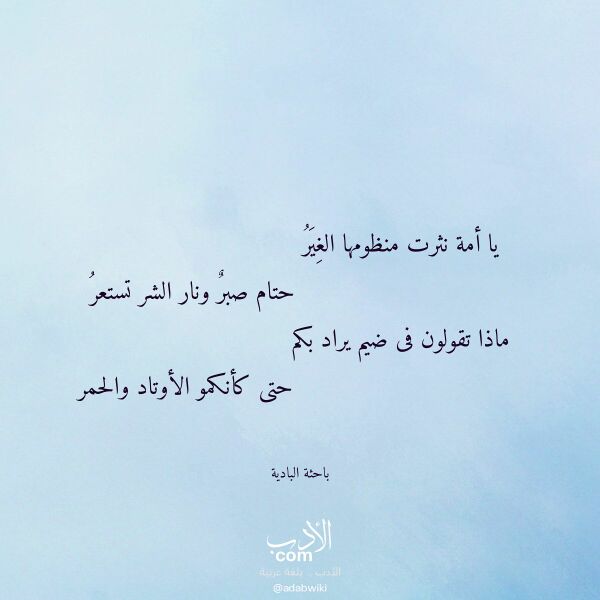 يا أمة نثرت منظومها الغِيَرُ
حتام صبرٌ ونار الشر تستعرُ
ماذا تقولون فى ضيم يراد بكم
حتى كأنكمو الأوتاد والحمر
باحثة البادية
الأدب
com
الأدب .. بلغة عربية
@adabwiki